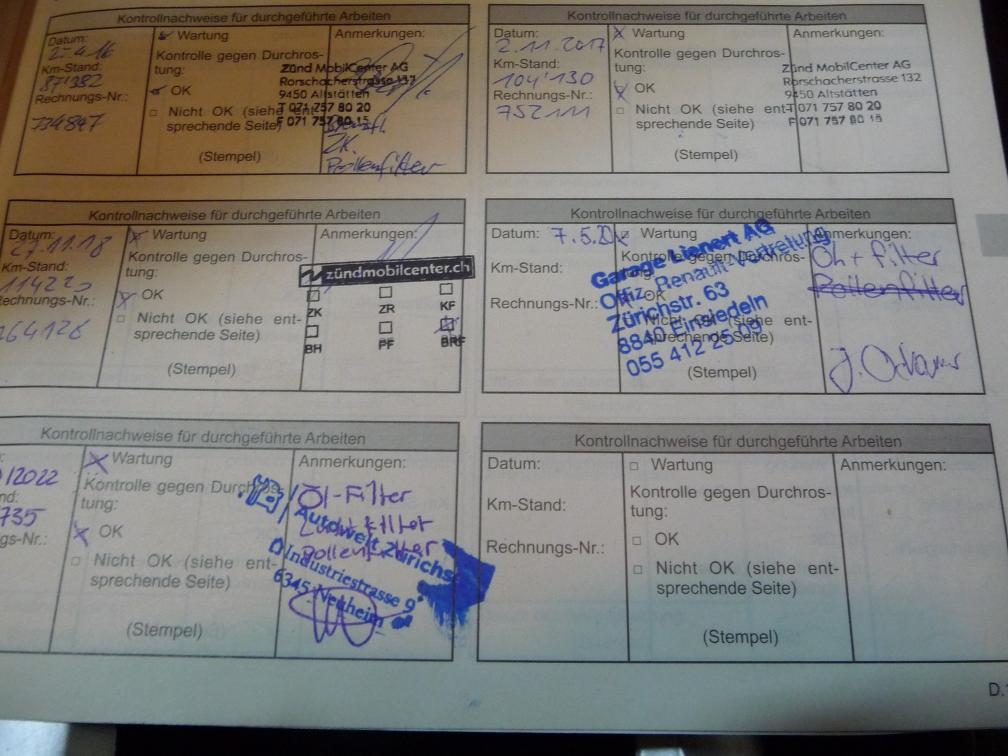 Kontrollnachweise für durchgeführte Arbeiten
Datum:
Km-Stand:
87'382
Rechnungs-Nr.:
734847
Wartung
Kontrolle gegen Durchros-
tung:
OK
□ Nicht OK (siehe ent-
sprechende Seite)
(Stempel)
Anmerkungen:
Zünd MobilCenter AG
Rorschacherstrasse 132
9450 Altstätten
T 071 757 80 20
F 071 757 80 15
ZK.
Pollenfilter
Kontrollnachweise für durchgeführte Arbeiten
Datum:
2.11.2017
Km-Stand:
104'130
Rechnungs-Nr.:
752111
Wartung
Kontrolle gegen Durchros-
tung:
OK
□ Nicht OK (siehe ent-
sprechende Seite)
(Stempel)
Anmerkungen:
Zünd MobilCenter AG
Rorschacherstrasse 132
9450 Altstätten
T 071 757 80 20
F 071 757 80 15
Kontrollnachweise für durchgeführte Arbeiten
Datum:
27.11.18
Km-Stand:
114220
Rechnungs-Nr.:
64128
Wartung
Kontrolle gegen Durchros-
tung:
OK
□ Nicht OK (siehe ent-
sprechende Seite)
(Stempel)
Anmerkungen:
zündmobilcenter.ch
ZK ZR KF
BH PF BRF
Kontrollnachweise für durchgeführte Arbeiten
Datum: 7.5.20
Km-Stand:
Rechnungs-Nr.:
Wartung
Kontrolle gegen Durchros-
tung:
OK
Nicht OK (siehe ent-
sprechende Seite)
(Stempel)
Anmerkungen:
filter
Pollenfilter
Garage Lienert AG
Offiz. Renault-Vertretung
Zürichstr. 63
8840 Einsiedeln
055 412 25 09
Kontrollnachweise für durchgeführte Arbeiten
/2022
nd:
735
gs-Nr.:
Wartung
Kontrolle gegen Durchros-
tung:
OK
□ Nicht OK (siehe ent-
sprechende Seite)
(Stempel)
Anmerkungen:
Öl-Filter
Luftfilter
Pollenfilter
Autowelt Zürichs
Industriestrasse 9
6345 Neuheim
Kontrollnachweise für durchgeführte Arbeiten
Datum:
Km-Stand:
Rechnungs-Nr.:
□ Wartung
Kontrolle gegen Durchros-
tung:
□ OK
□ Nicht OK (siehe ent-
sprechende Seite)
(Stempel)
Anmerkungen:
D.